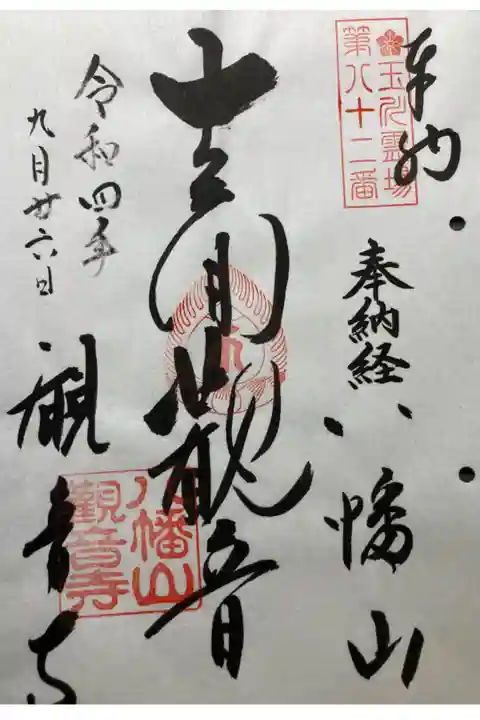 奉納
玉川霊場
第八十二番
奉納経 八幡山
十一面觀音
令和四年
九月廿六日
觀音寺
八幡山
觀音寺